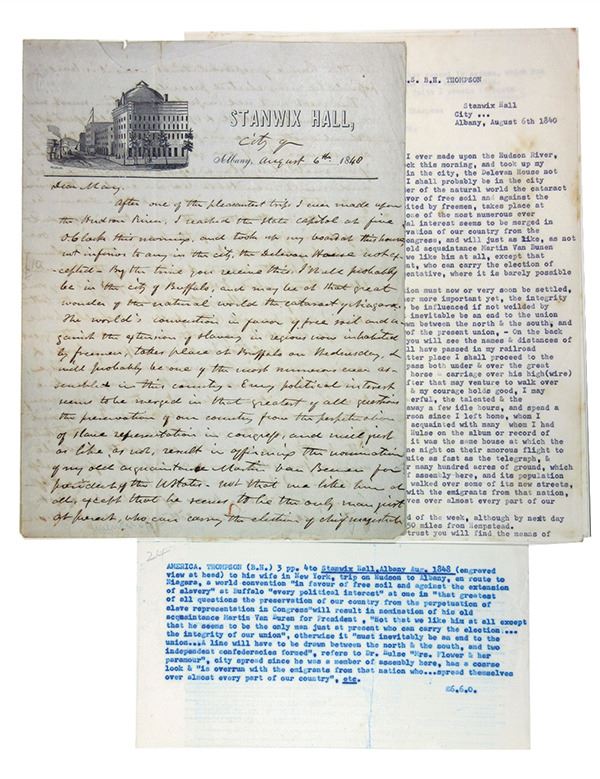 STANWIX HALL,
City of
Albany, August 6th 1848
Dear Mary,
After one of the pleasantest trips I ever made upon
the Hudson River, I reached the State capitol at five
O.Clock this morning, and took up my board at this house
not inferior to any in the city, the Delevan House not ex-
cepted - By the time you receive this, I shall probably
be in the city of Buffalo, and may be at that great
wonder of the natural world the cataract of Niagara.
The world's convention in favor of free soil and a-
gainst the extension of slavery, in regions now inhabited
by freemen, takes place at Buffalo on Wednesday, &
will probably be one of the most numerous ever as-
sembled in this country - Every political interest
seems to be merged in that greatest of all questions
the preservation of our country, from the perpetuation
of slave representation in congress, and will just
as like, as not, result in affirming the nomination
of my old acquaintance Martin Van Beuren for
president of the UStates - not that we like him at
all, except that he seems to be the only man just
at present, who can carry the election of chief magistrate
.S. B.H. THOMPSON
Stanwix Hall
City ...
Albany, August 6th 1840
I ever made upon the Hudson River,
ck this morning, and took up my
in the city, the Delevan House not
I shall probably be in the city
er of the natural world the cataract
vor of free soil and against the
ited by freemen, takes place at
one of the most numerous ever
al interest seems to be merged in
vation of our country from the
ongress, and will just as like, as not
old acquaintance Martin Van Buren
we like him at all, except that
t, who can carry the election of
entative, where it is barely possible
ion must now or very soon be settled,
er more important yet, the integrity
be influenced if not weilded by
inevitable be an end to the union
wn between the north & the south, and
of the present union, - On the back
you will see the names & distances of
ll have passed in my railroad
tter place I shall proceed to the
pass both under & over the great
horse - carriage over his high(wire)
fter that may venture to walk over
& my courage holds good, I may
erful, the talented & the
away a few idle hours, and spend a
erson since I left home, whom I
acquainted with many whom I had
ulse on the album or record of
it was the same house at which the
ne night on their amorous flight to
uite as fast as the telegraph, &
r many hundred acres of ground, which
f assembly here, and its population
walked over some of its new streets,
with the emigrants from that nation,
ves over almost every part of our
d of the week, although by next day
50 miles from hempstead.
trust you will find the means of
24
AMERICA. THOMPSON (B.H.) 3 pp. 4to Stanwix Hall, Albany Aug. 1848 (engraved
view at head) to his wife in New York, trip on Hudson to Albany, en route to
Niagara, a world convention "in favour of free soil and against the extension
of slavery" at Buffalo "every political interest" at one in "that greatest
of all questions the preservation of our country from the perpetuation of
slave representation in Congress"will result in nomination of his old
acquaintance Martin Van Buren for President , "Not that we like him at all except
that he seems to be the only man just at present who can carry the election....
the integrity of our union", otherwise it "must inevitably be an end to the
union...A line will have to be drawn between the north & the south, and two
independent confederacies formed", refers to Dr. Hulse "Mrs. Flower & her
paramour", city spread since he was a member of assembly here, has a coarse
look & "is overrun with the emigrants from that nation who...spread themselves
over almost every part of our country", etc.
£6.6.0.